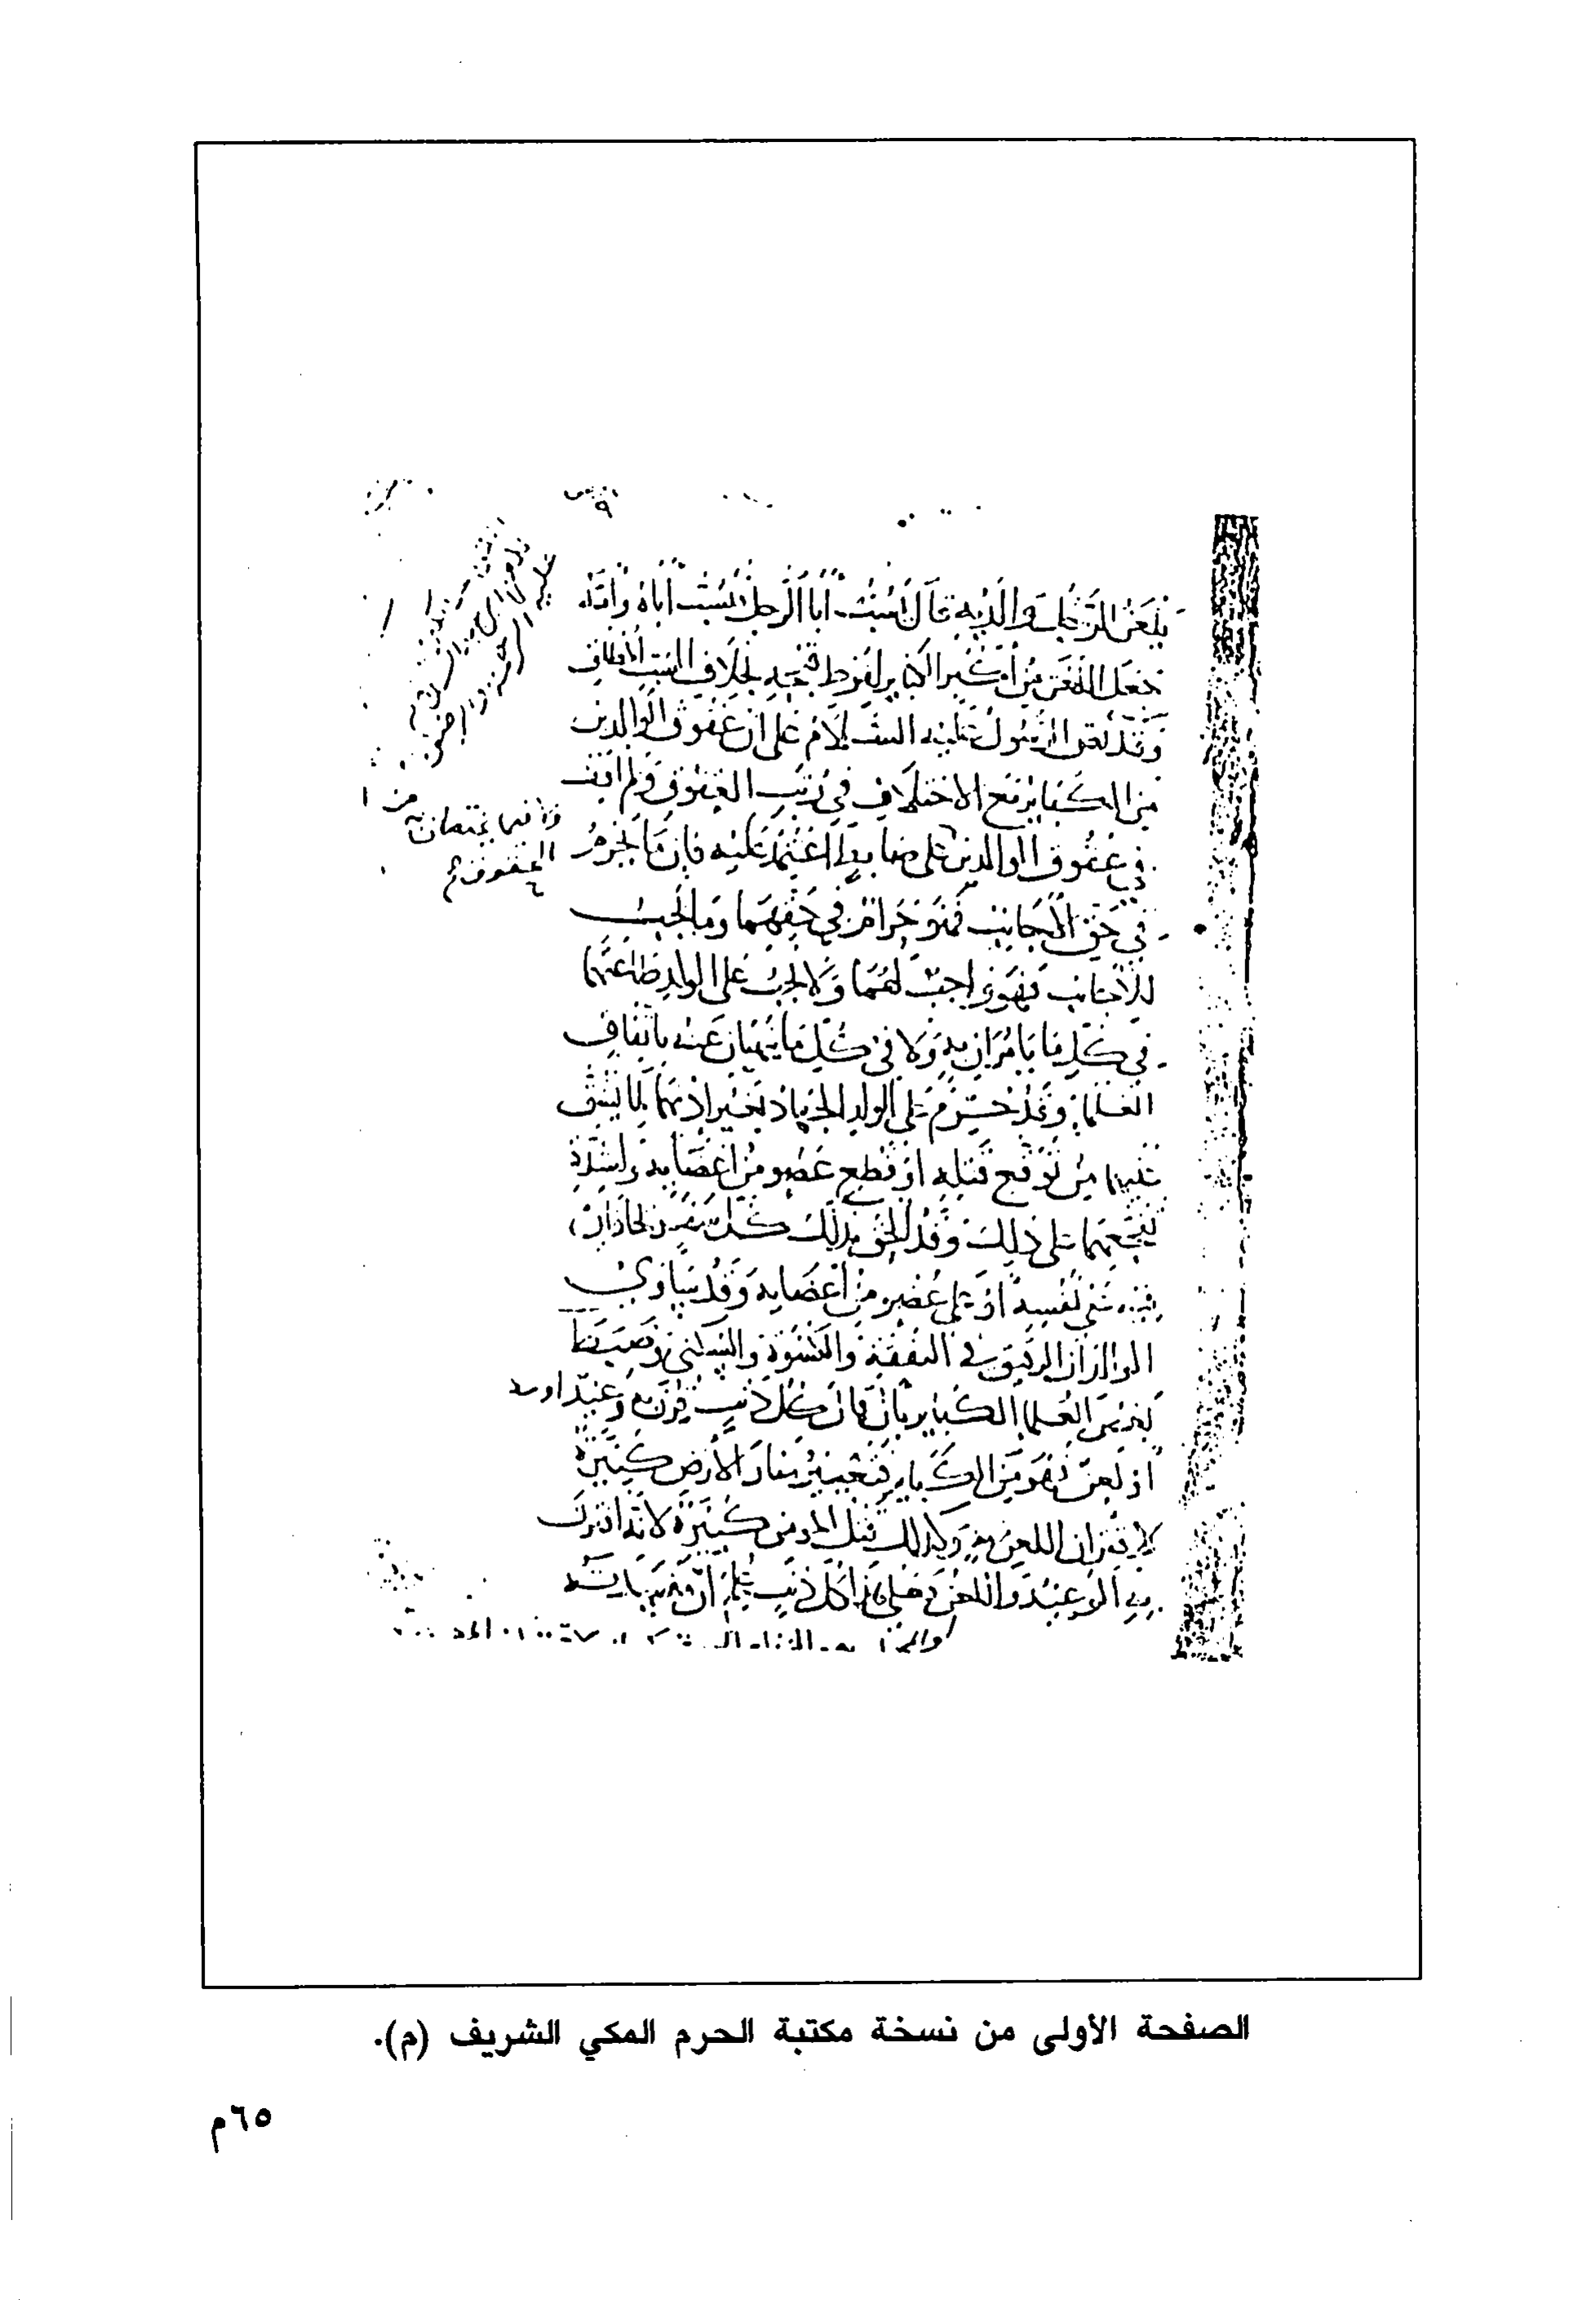 يلعن الرجل والديه قال يسب أبا الرجل فيسب أباه وأمه
جعل اللعن من أكبر الكبائر لفرط قبحه بخلاف السب المطلق
وقد نص الرسول عليه السلام على أن عقوق الوالدين
من الكبائر مع الاختلاف في رتب العقوق ولم أقف
في عقوق الوالدين على ضابط أعتمد عليه فإن ما يحرم
في حق الأجانب فهو حرام في حقهما وما يجب
للأجانب فهو واجب لهما ولا يجب على الولد طاعتهما
في كل ما يأمران به ولا في كل ما ينهيان عنه باتفاق
العلماء وقد حرم على الولد الجهاد بغير إذنهما لما يشق
عليهما من توقع قتله أو قطع عضو من أعضائه ولشدة
تفجعهما على ذلك وقد ألحق بذلك كل سفر يخافان
فيه على نفسه أو على عضو من أعضائه وقد ساوى
الوالدان الرقيق في النفقة والكسوة والسكنى وضبط
بعض العلماء الكبائر بأن قال كل ذنب قرن به وعيد أو حد
أو لعن فهو من الكبائر فتغيير منار الأرض كبيرة
لاقتران اللعن به وكذلك قتل المؤمن كبيرة لأنه اقترن
به الوعيد واللعن والحد فعلى هذا كل ذنب علم أن مفسدته
الصفحة الأولى من نسخة مكتبة الحرم المكي الشريف (م).
٦٥م